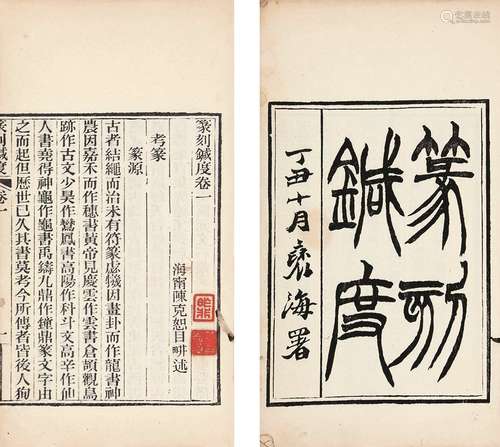 篆刻
鍼度
丁丑十月褱海署
篆刻鍼度卷一
海甯陳克恕目畊述
考篆
篆源
古者結繩而治未有符篆虙犧因畫卦而作龍書神
農因嘉禾而作穗書黃帝見慶雲作雲書倉頡觀鳥
跡作古文少昊作鸞鳳書高陽作科斗文高辛作仙
人書堯得神龜作龜書禹鑄九鼎作鐘鼎篆文字由
之而起但歷世已久其書莫考今所傳者皆後人狥
篆刻鍼度 卷一 一